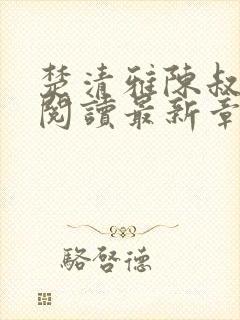 楚清雅陳叔
閱讀最新章
駱啓德